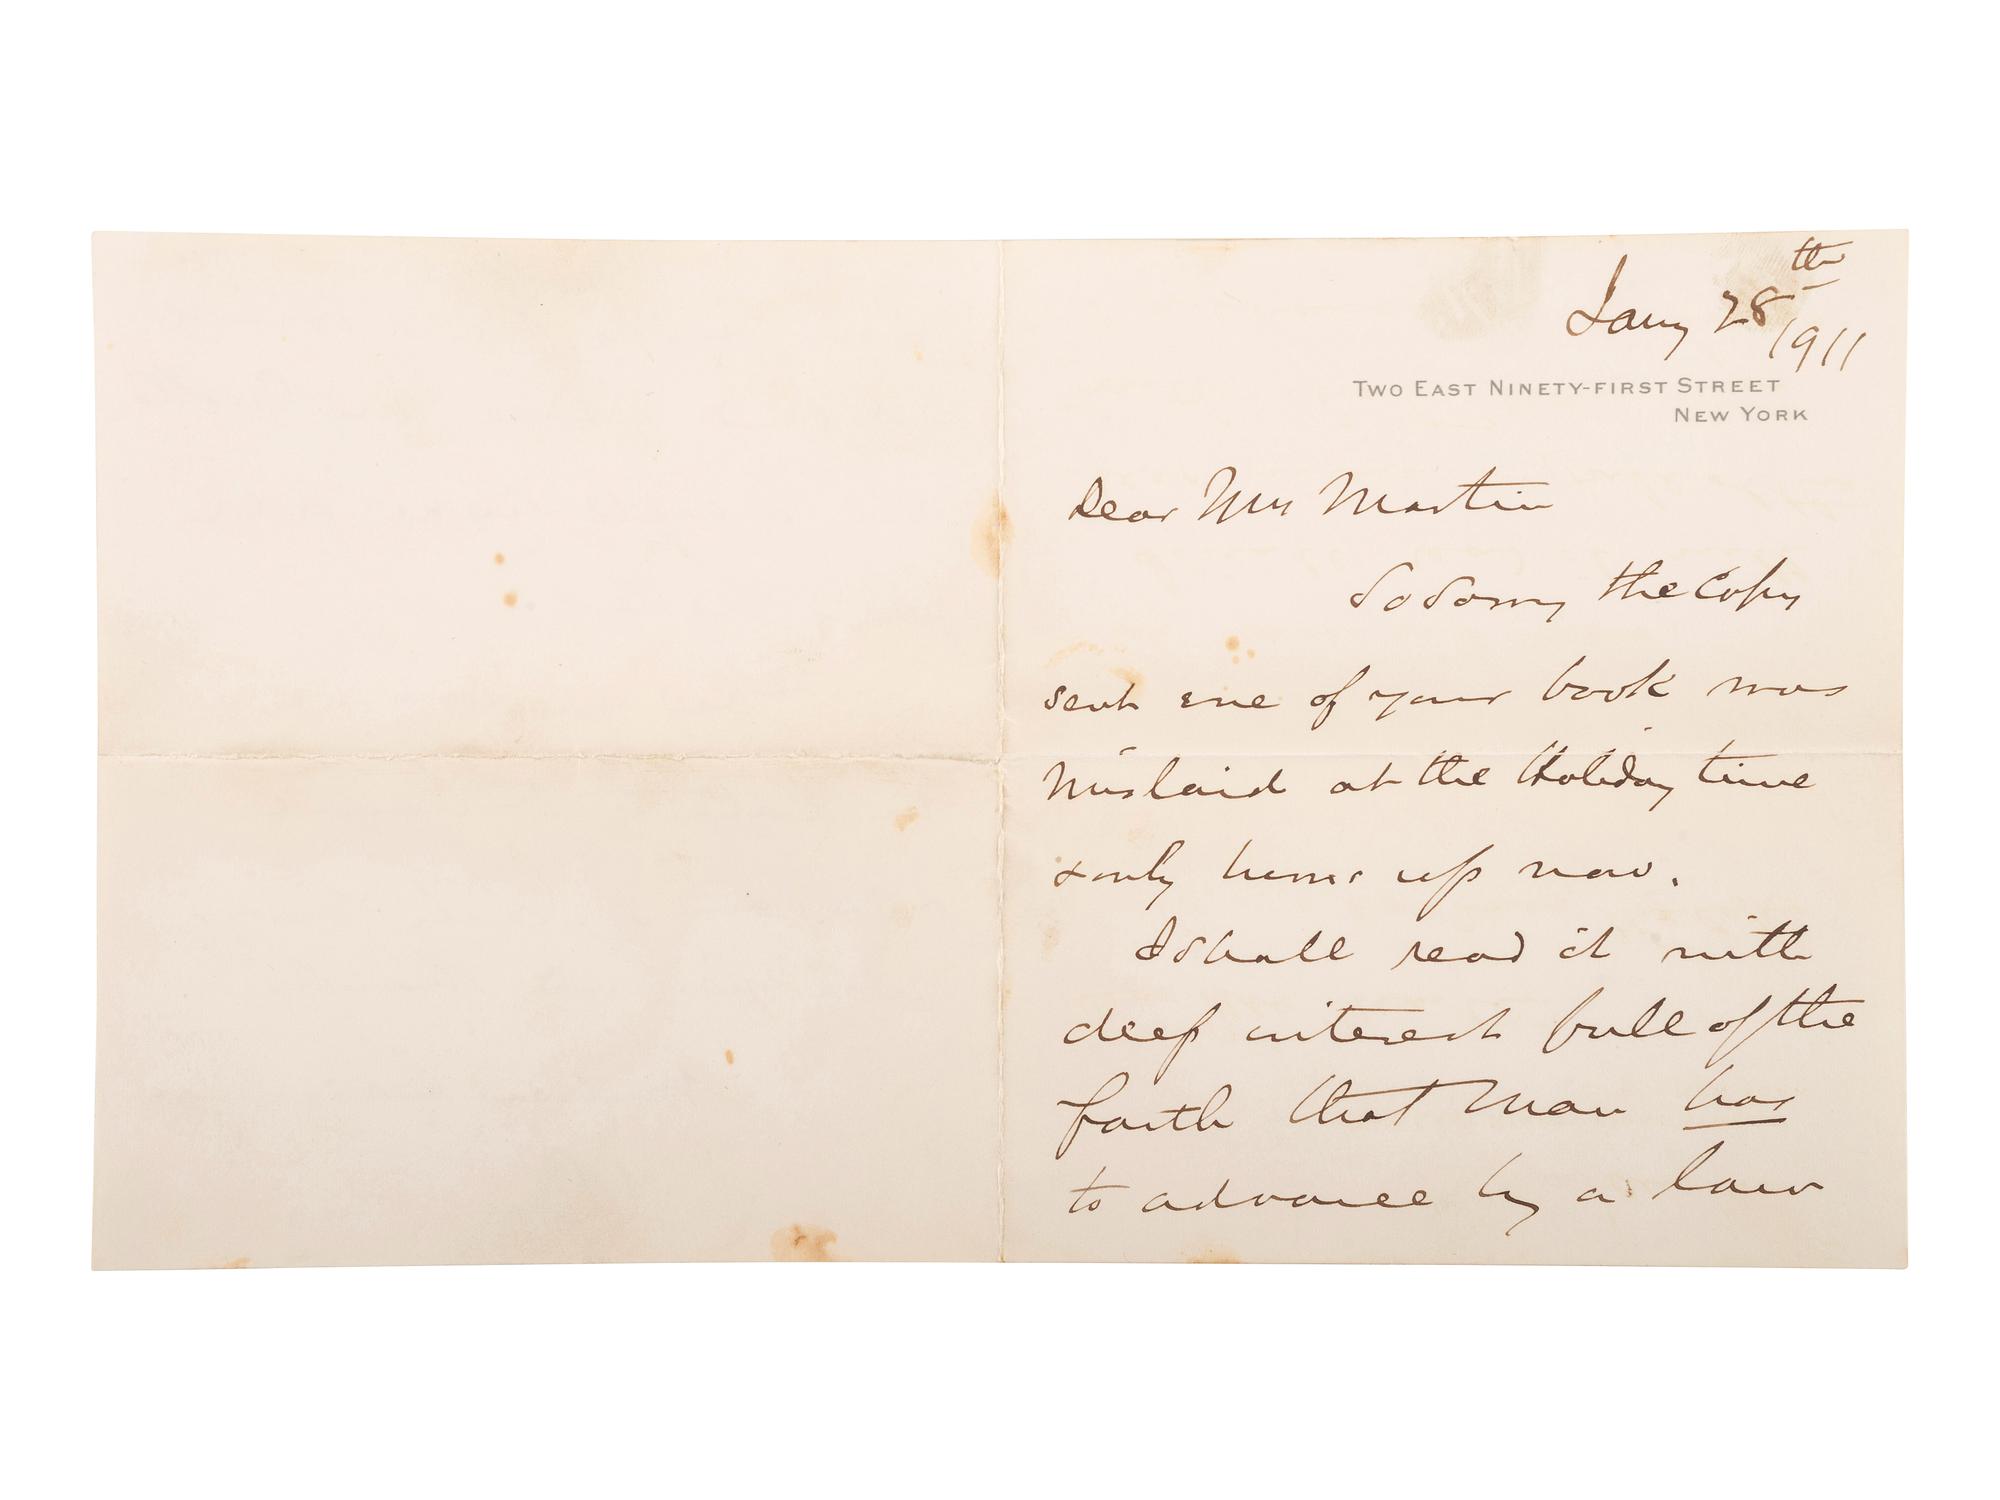 Jany 28th
1911
TWO EAST NINETY-FIRST STREET
NEW YORK
Dear Mrs Martin
So Sorry the Copy
sent me of your book was
mislaid at the Holiday time
& only turns up now.
I shall read it with
deep interest full of the
faith that Man has
to advance by a law